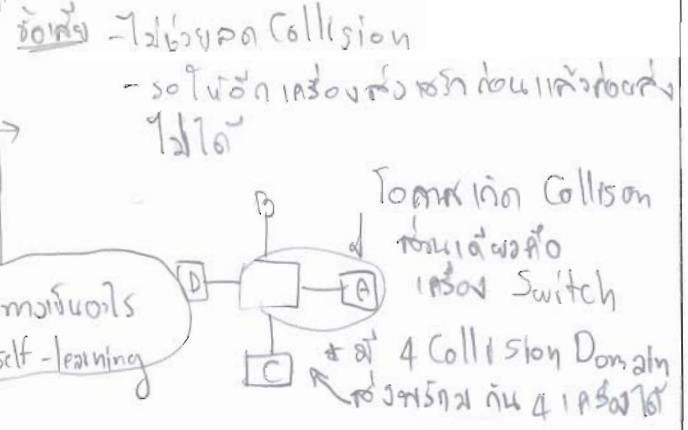 ข้อเสีย - ไม่ช่วยลด Collision
- รอให้อีกเครื่องส่งเสร็จก่อนแล้วค่อยส่ง
ไม่ได้
โอกาสเกิด Collison
ส่วนเดียวคือ
เครื่อง Switch
B
D
A
C
ทางเป็นอะไร
self-learning
* มี 4 Collision Domain
ส่งพร้อมกัน 4 เครื่องได้